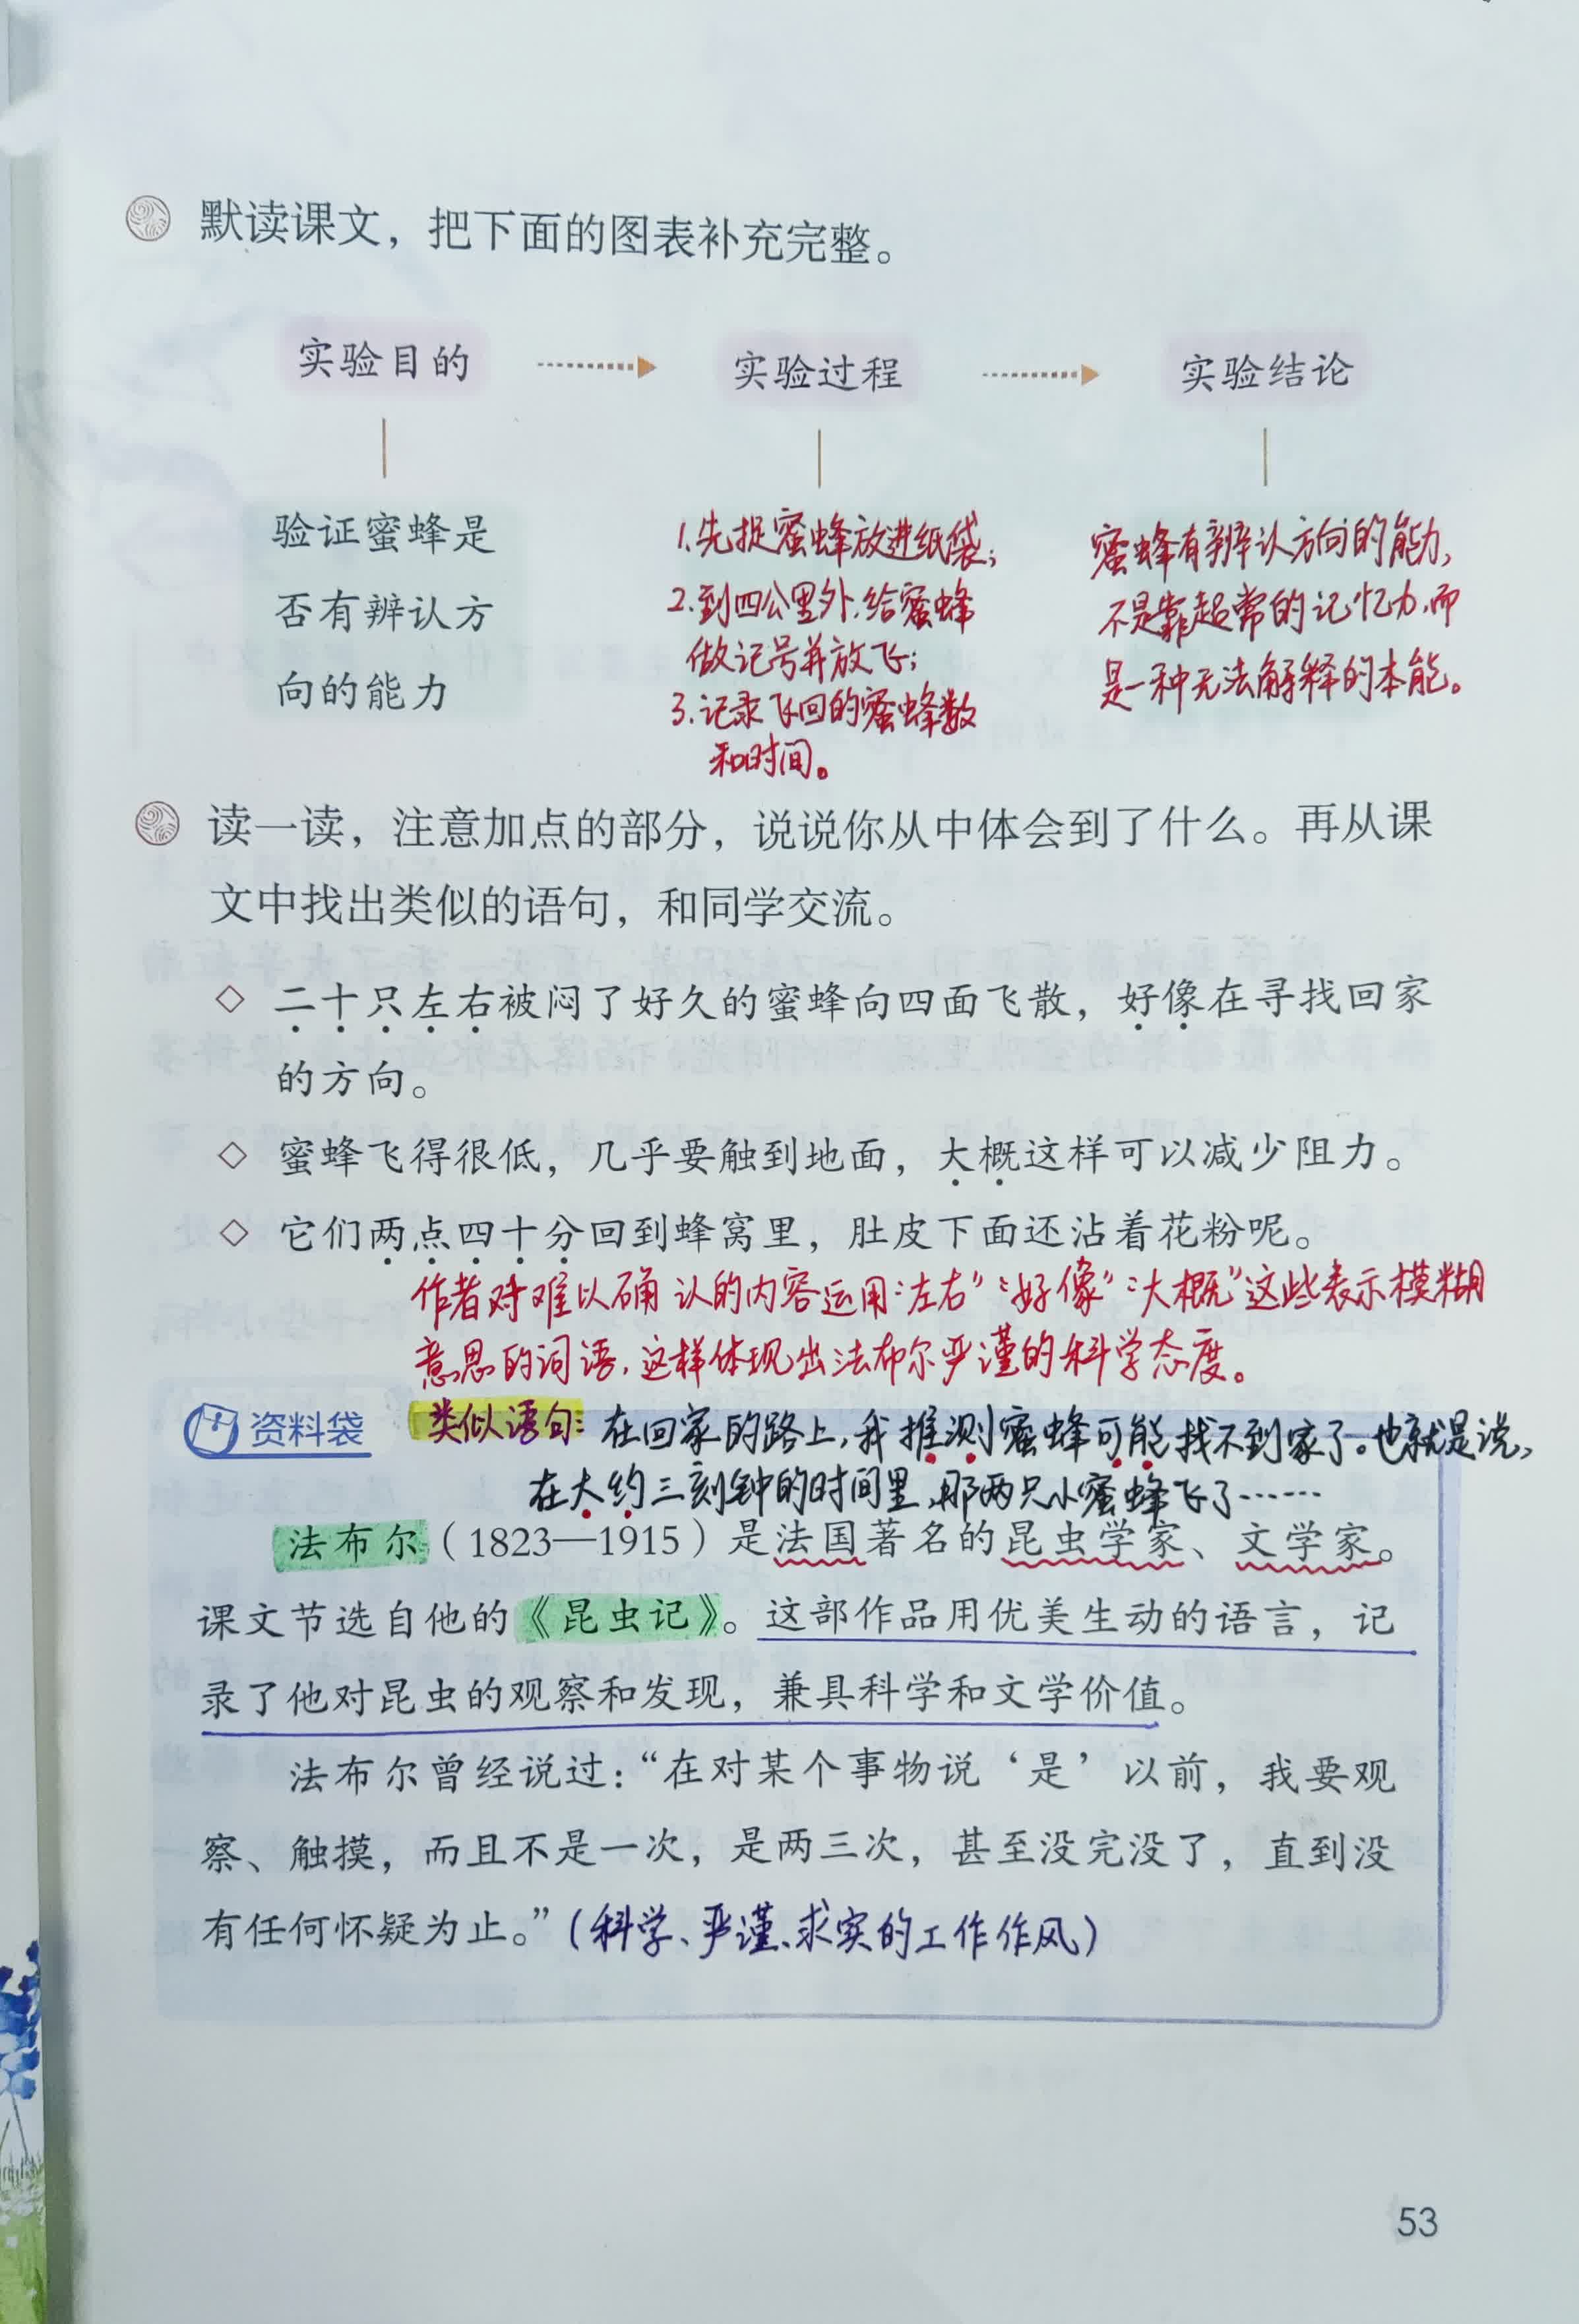 默读课文，把下面的图表补充完整。
实验目的
实验过程
实验结论
验证蜜蜂是
否有辨认方
向的能力
1.先捉蜜蜂放进纸袋；
2.到四公里外，给蜜蜂
做记号并放飞；
3.记录飞回的蜜蜂数
和时间。
蜜蜂有辨认方向的能力，
不是靠超常的记忆力，而
是一种无法解释的本能。
读一读，注意加点的部分，说说你从中体会到了什么。再从课
文中找出类似的语句，和同学交流。
◇ 二十只左右被闷了好久的蜜蜂向四面飞散，好像在寻找回家
的方向。
◇ 蜜蜂飞得很低，几乎要触到地面，大概这样可以减少阻力。
◇ 它们两点四十分回到蜂窝里，肚皮下面还沾着花粉呢。
作者对难以确认的内容运用“左右”“好像”“大概”这些表示模糊
意思的词语，这样体现出法布尔严谨的科学态度。
资料袋
类似语句：在回家的路上，我推测蜜蜂可能找不到家了。也就是说，
在大约三刻钟的时间里，那两只小蜜蜂飞了……
法布尔（1823—1915）是法国著名的昆虫学家、文学家。
课文节选自他的《昆虫记》。这部作品用优美生动的语言，记
录了他对昆虫的观察和发现，兼具科学和文学价值。
法布尔曾经说过：“在对某个事物说‘是’以前，我要观
察、触摸，而且不是一次，是两三次，甚至没完没了，直到没
有任何怀疑为止。”（科学、严谨、求实的工作作风）
53